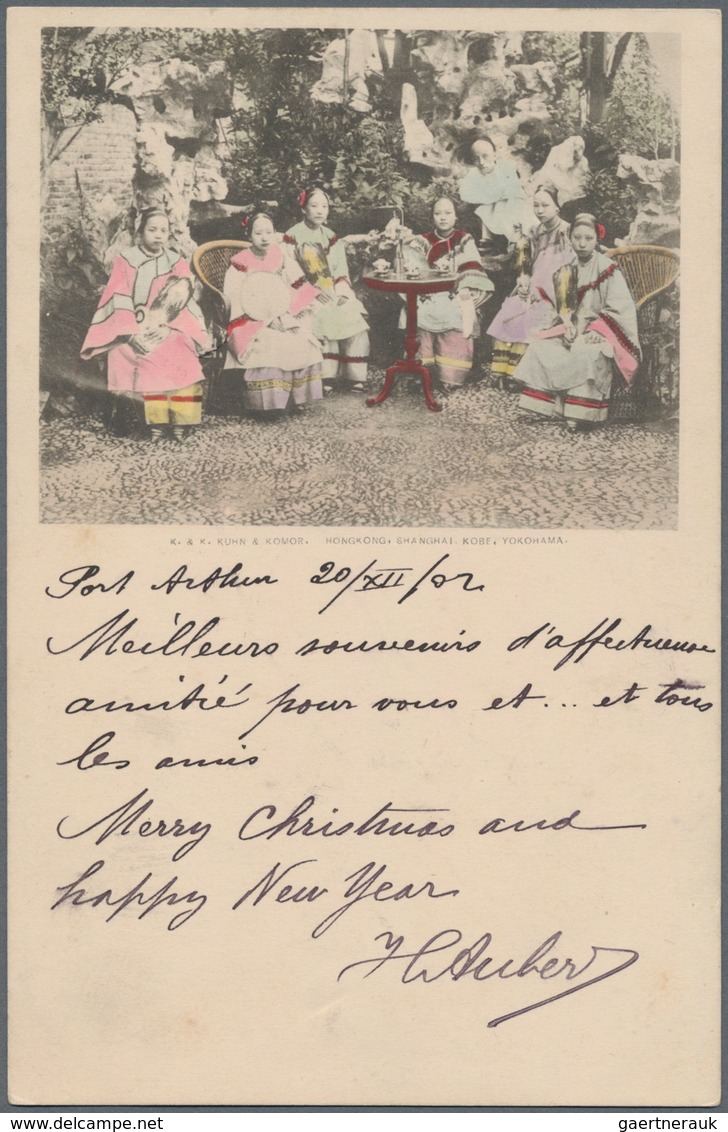 K. & K. KUHN & KOMOR. HONGKONG, SHANGHAI, KOBE, YOKOHAMA.
Port Arthur 20/XII/02
Meilleurs souvenirs d'affectueuse
amitié pour vous et... et tous
les amis
Merry Christmas and
happy New Year
H Auber
gaertnerauk